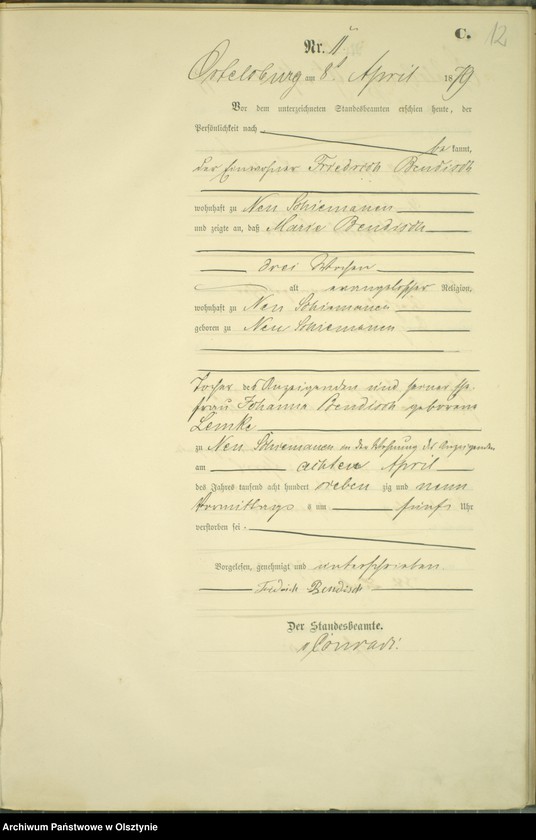 C. 12
Nr. 11
Ortelsburg am 8t April 1879
Vor dem unterzeichneten Standesbeamten erschien heute, der
Persönlichkeit nach
be kannt,
der Einwohner Friedrich Bendisch
wohnhaft zu Neu Schiemanen
und zeigte an, daß Marie Bendisch
drei Wochen
alt evangelischer Religion,
wohnhaft zu Neu Schiemanen
geboren zu Neu Schiemanen
Tochter des Anzeigenden und seiner Ehe
frau Johanne Bendisch geborene
Lemke
zu Neu Schiemanen in der Wohnung des Anzeigenden
am achten April
des Jahres tausend acht hundert sieben zig und neun
Vormittags um fünf Uhr
verstorben sei
Vorgelesen, genehmigt und unterschrieben
Fridrich Bendisch
Der Standesbeamte.
Conradi.
Archiwum Państwowe w Olsztynie